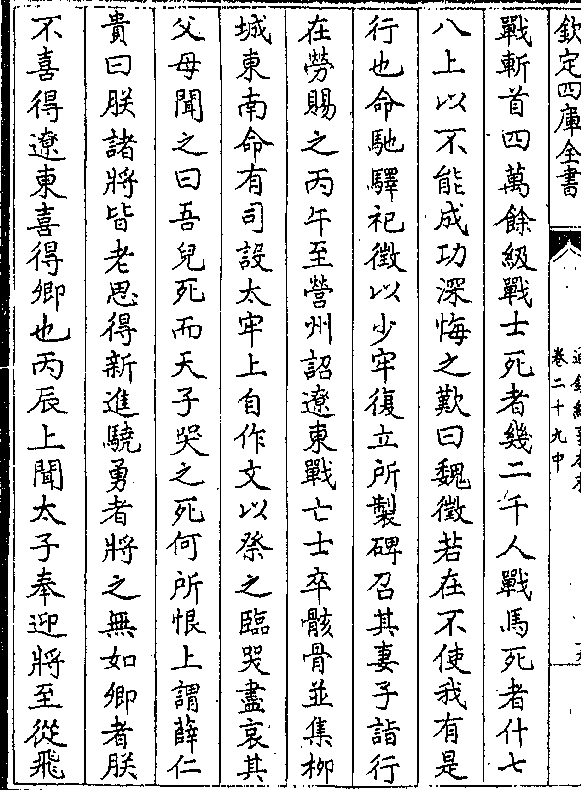 欽定四庫全書
卷二十九中
戰斬首四萬餘級戰士死者幾二千人戰馬死者什七
八上以不能成功深悔之歎曰魏徵若在不使我有是
行也命馳驛祀徵以少牢復立所製碑召其妻子詣行
在勞賜之丙午至營州詔遼東戰亡士卒骸骨並集柳
城東南命有司設太牢上自作文以祭之臨哭盡哀其
父母聞之曰吾兒死而天子哭之死何所恨上謂薛仁
貴曰朕諸將皆老思得新進驍勇者將之無如卿者朕
不喜得遼東喜得卿也丙辰上聞太子奉迎將至從飛